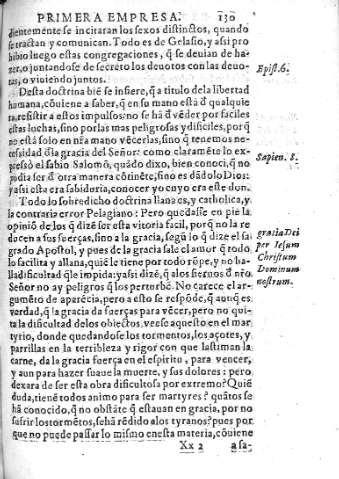 PRIMERA EMPRESA. 130
dientemente se incitaran los sexos distinctos, quando
se tractan y comunican. Todo es de Gelasio, y assi pro
hibio luego estas congregaciones, q̃ se deuian de ha-
zer, o juntandose de secreto los deuotos con las deuo-
tas, o viuiendo juntos.
Epist. 6.
Desta doctrina biẽ se infiere, q̃ a titulo dela libertad
humana, cõuiene a saber, q̃ en su mano està d̃ qualquie
ra, resistir a estos impulsos: no se hã d̃ vẽder por faciles
estas luchas, sino por las mas peligrosas y dificiles, por q̃
no està solo en nr̃a mano vẽcerlas, sino q̃ tenemos ne-
cessidad d̃ la gracia del Señor: como claramẽte lo ex-
pressò el sabio Salomõ, quãdo dixo, bien conoci, q̃ no
podia ser d̃ otra manera cõtinẽte, sino es dãdolo Dios:
y assi esta era sabiduria, conocer yo cuyo era este don.
Sapien. 8.
Todo lo sobredicho doctrina llana es, y catholica, y
la contraria error Pelagiano: Pero quedasse en pie la
opiniõ de los q̃ dizẽ ser esta vitoria facil, porq̃ no la re
ducen a sus fuerças, sino a la gracia, segũ lo q̃ dize el sa
grado Apostol, y pues de la gracia sale el amor q̃ todo
lo facilita y allana, quiẽ le tiene por todo rõpe, y no ha-
lla dificultad q̃ le impida: y assi dizẽ, q̃ a los sieruos d̃ nr̃o
Señor no ay peligros q̃ los perturbẽ. No carece el ar-
gumẽto de aparẽcia, pero a esto se respõde, q̃ aunq̃ es
verdad, q̃ la gracia da fuerças para vẽcer, pero no qui-
ta la dificultad de los obiectos, veese aquesto en el mar-
tyrio, donde quedandose los tormentos, los açotes, y
parrillas en la terribleza y rigor con que lastiman la
carne, da la gracia fuerça en el espiritu, para vencer,
y aun para hazer suaue la muerte, y sus dolores: pero
dexara de ser esta obra dificultosa por extremo? Quiẽ
duda, tienẽ todos animo para ser martyres? quãtos se
hã conocido, q̃ no obstãte q̃ estauan en gracia, por no
sufrir los tormẽtos, se hã rẽdido a los tyranos? pues por
que no puede passar lo mismo en esta materia, cõuiene
gratia Dei
per Iesum
Christum
Dominum
nostrum.
Xx 2 a sa-